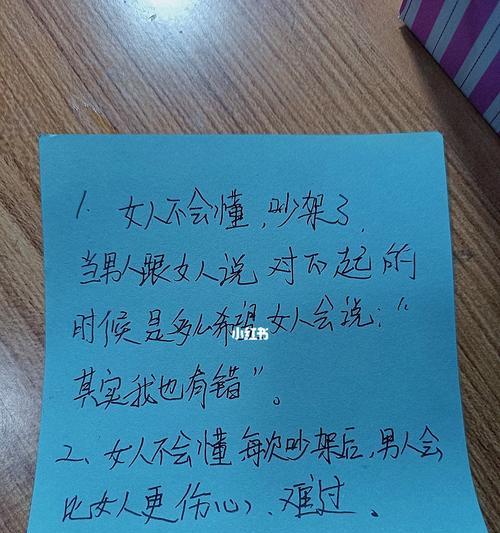 1. 女人不会懂,吵架了,
当男人跟女人说 对不起的
时候 是多么希望 女人会说:“
小红书
其实我也有错”。
2、女人不会懂 每次吵架后,男人会
比女人更 伤心、难过。